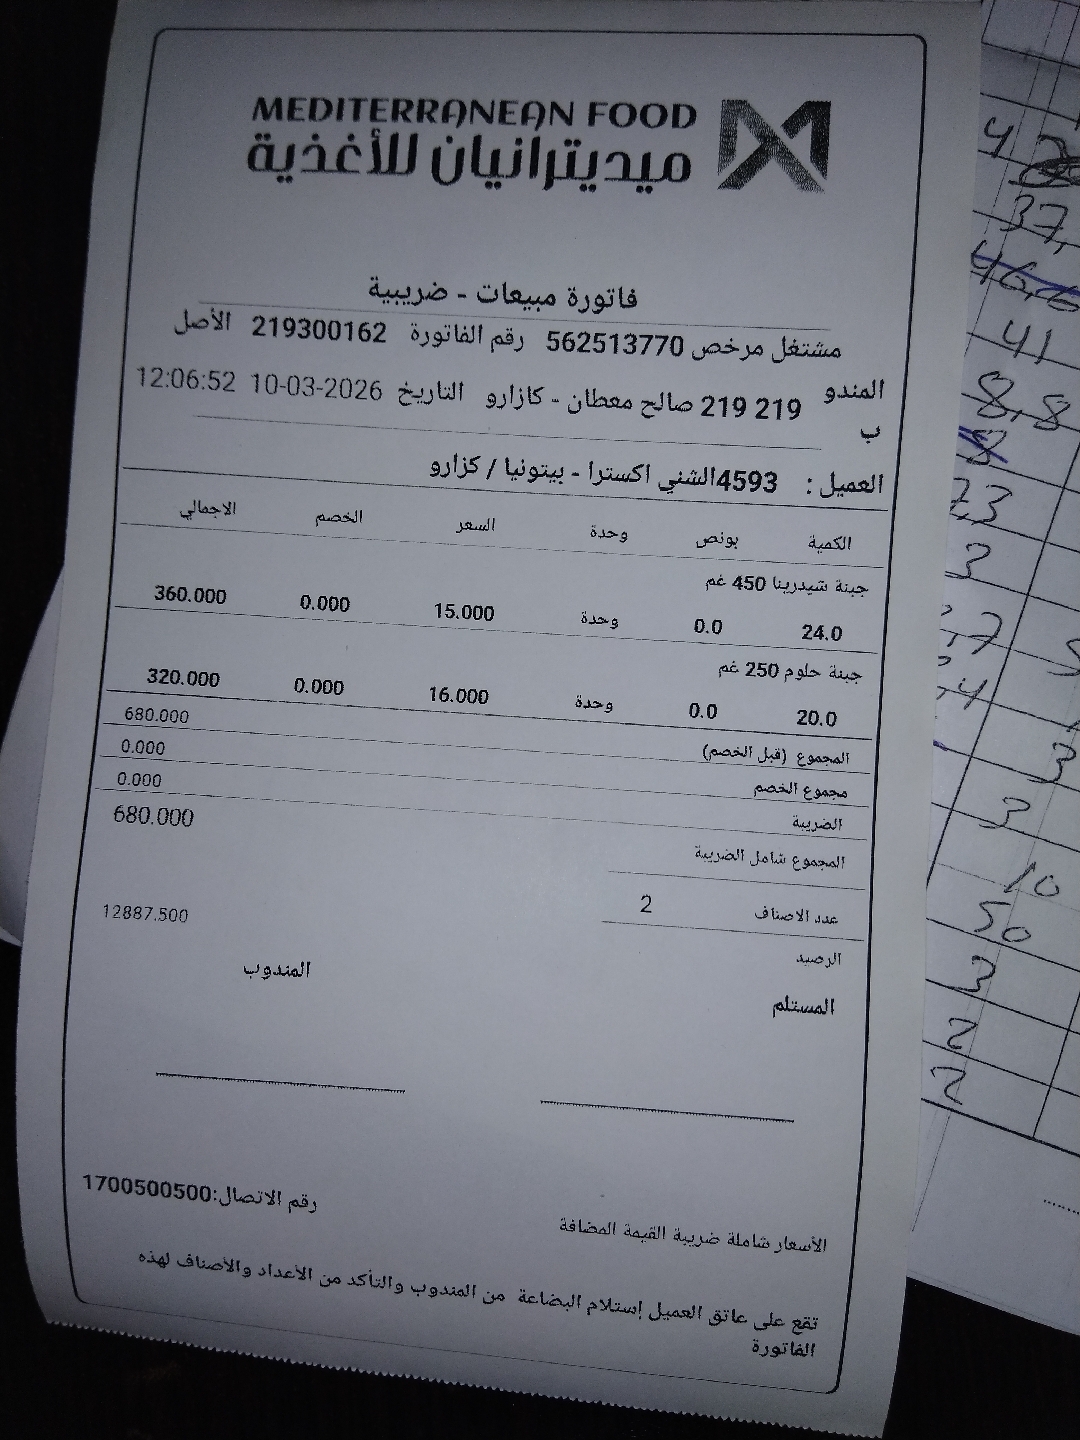 MEDITERRANEAN FOOD
ميديترانيان للأغذية
فاتورة مبيعات - ضريبية
مشتغل مرخص 562513770 رقم الفاتورة 219300162 الأصل
المندو
ب
219 219 صالح معطان - كازارو التاريخ 10-03-2026 12:06:52
العميل : 4593الشني اكسترا - بيتونيا / كزارو
الكمية بونص وحدة السعر الخصم الاجمالي
جبنة شيدرينا 450 غم
24.0 0.0 وحدة 15.000 0.000 360.000
جبنة حلوم 250 غم
20.0 0.0 وحدة 16.000 0.000 320.000
المجموع (قبل الخصم) 680.000
مجموع الخصم 0.000
الضريبة 0.000
المجموع شامل الضريبة 680.000
عدد الاصناف 2
الرصيد 12887.500
المستلم المندوب
رقم الاتصال:1700500500
الأسعار شاملة ضريبة القيمة المضافة
تقع على عاتق العميل إستلام البضاعة من المندوب والتأكد من الأعداد والأصناف لهذه
الفاتورة
37,
46,6
41
8,8
3
3
3
10
50
3
2
2